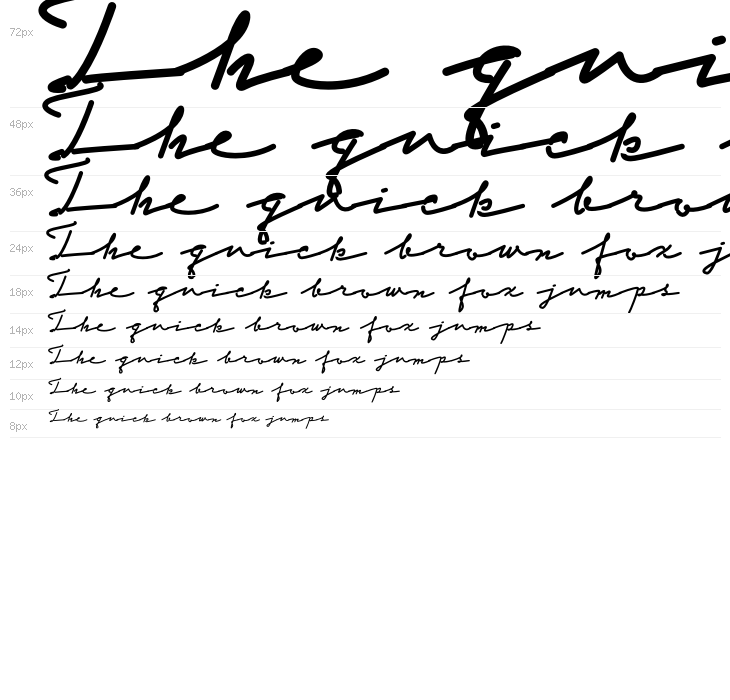 72px The qui
48px The quick
36px The quick bro
24px The quick brown fox j
18px The quick brown fox jumps
14px The quick brown fox jumps
12px The quick brown fox jumps
10px The quick brown fox jumps
8px The quick brown fox jumps